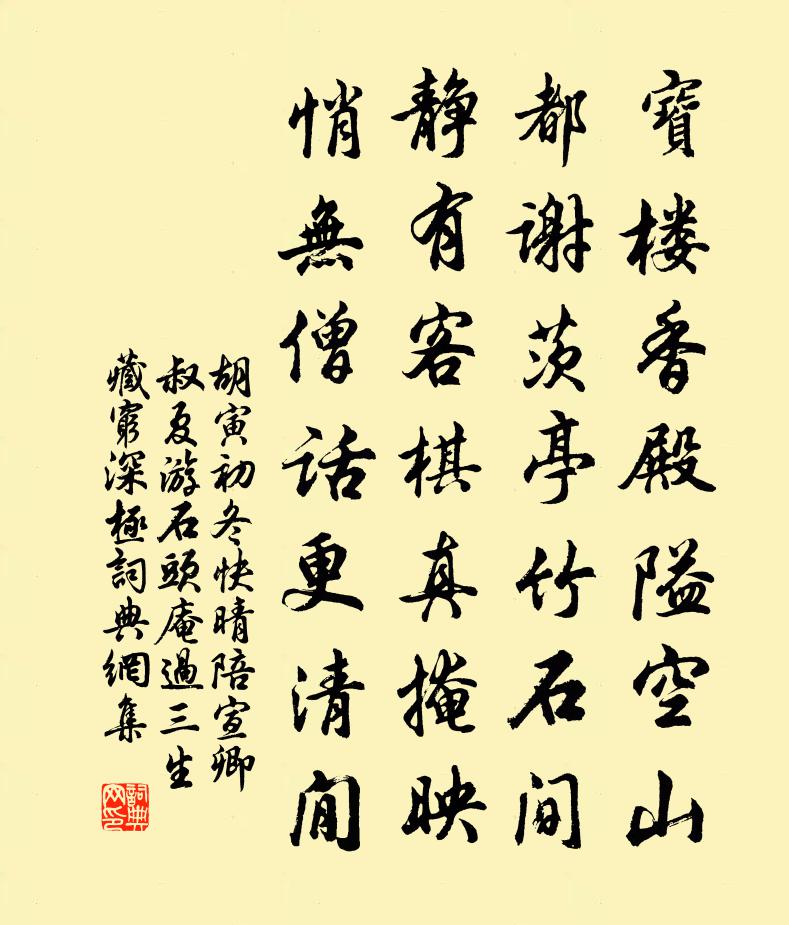 寶楼香殿隘空山
都谢茨亭竹石间
静有客棋真掩映
悄無僧话更清闲
胡寅初冬快晴陪宣卿
叔夏游石頭庵過三生
藏窮深極詞典網集
詞典网印